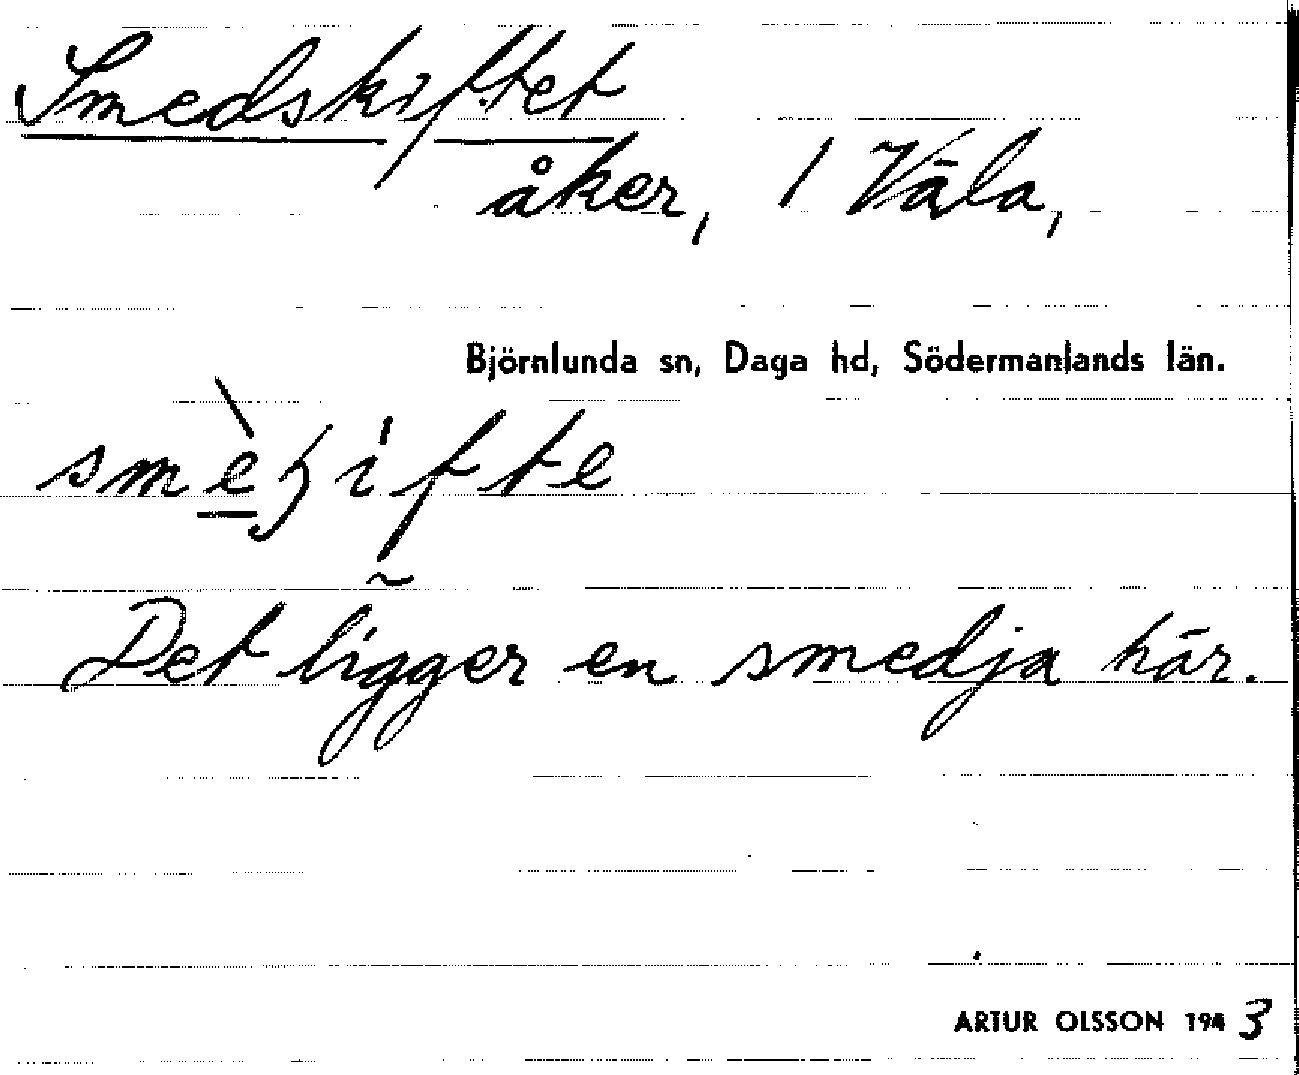 Smedskiftet
åker, 1 Väla,
Björnlunda sn, Daga hd, Södermanlands län.
Det ligger en smedja här.
ARTUR OLSSON 1943